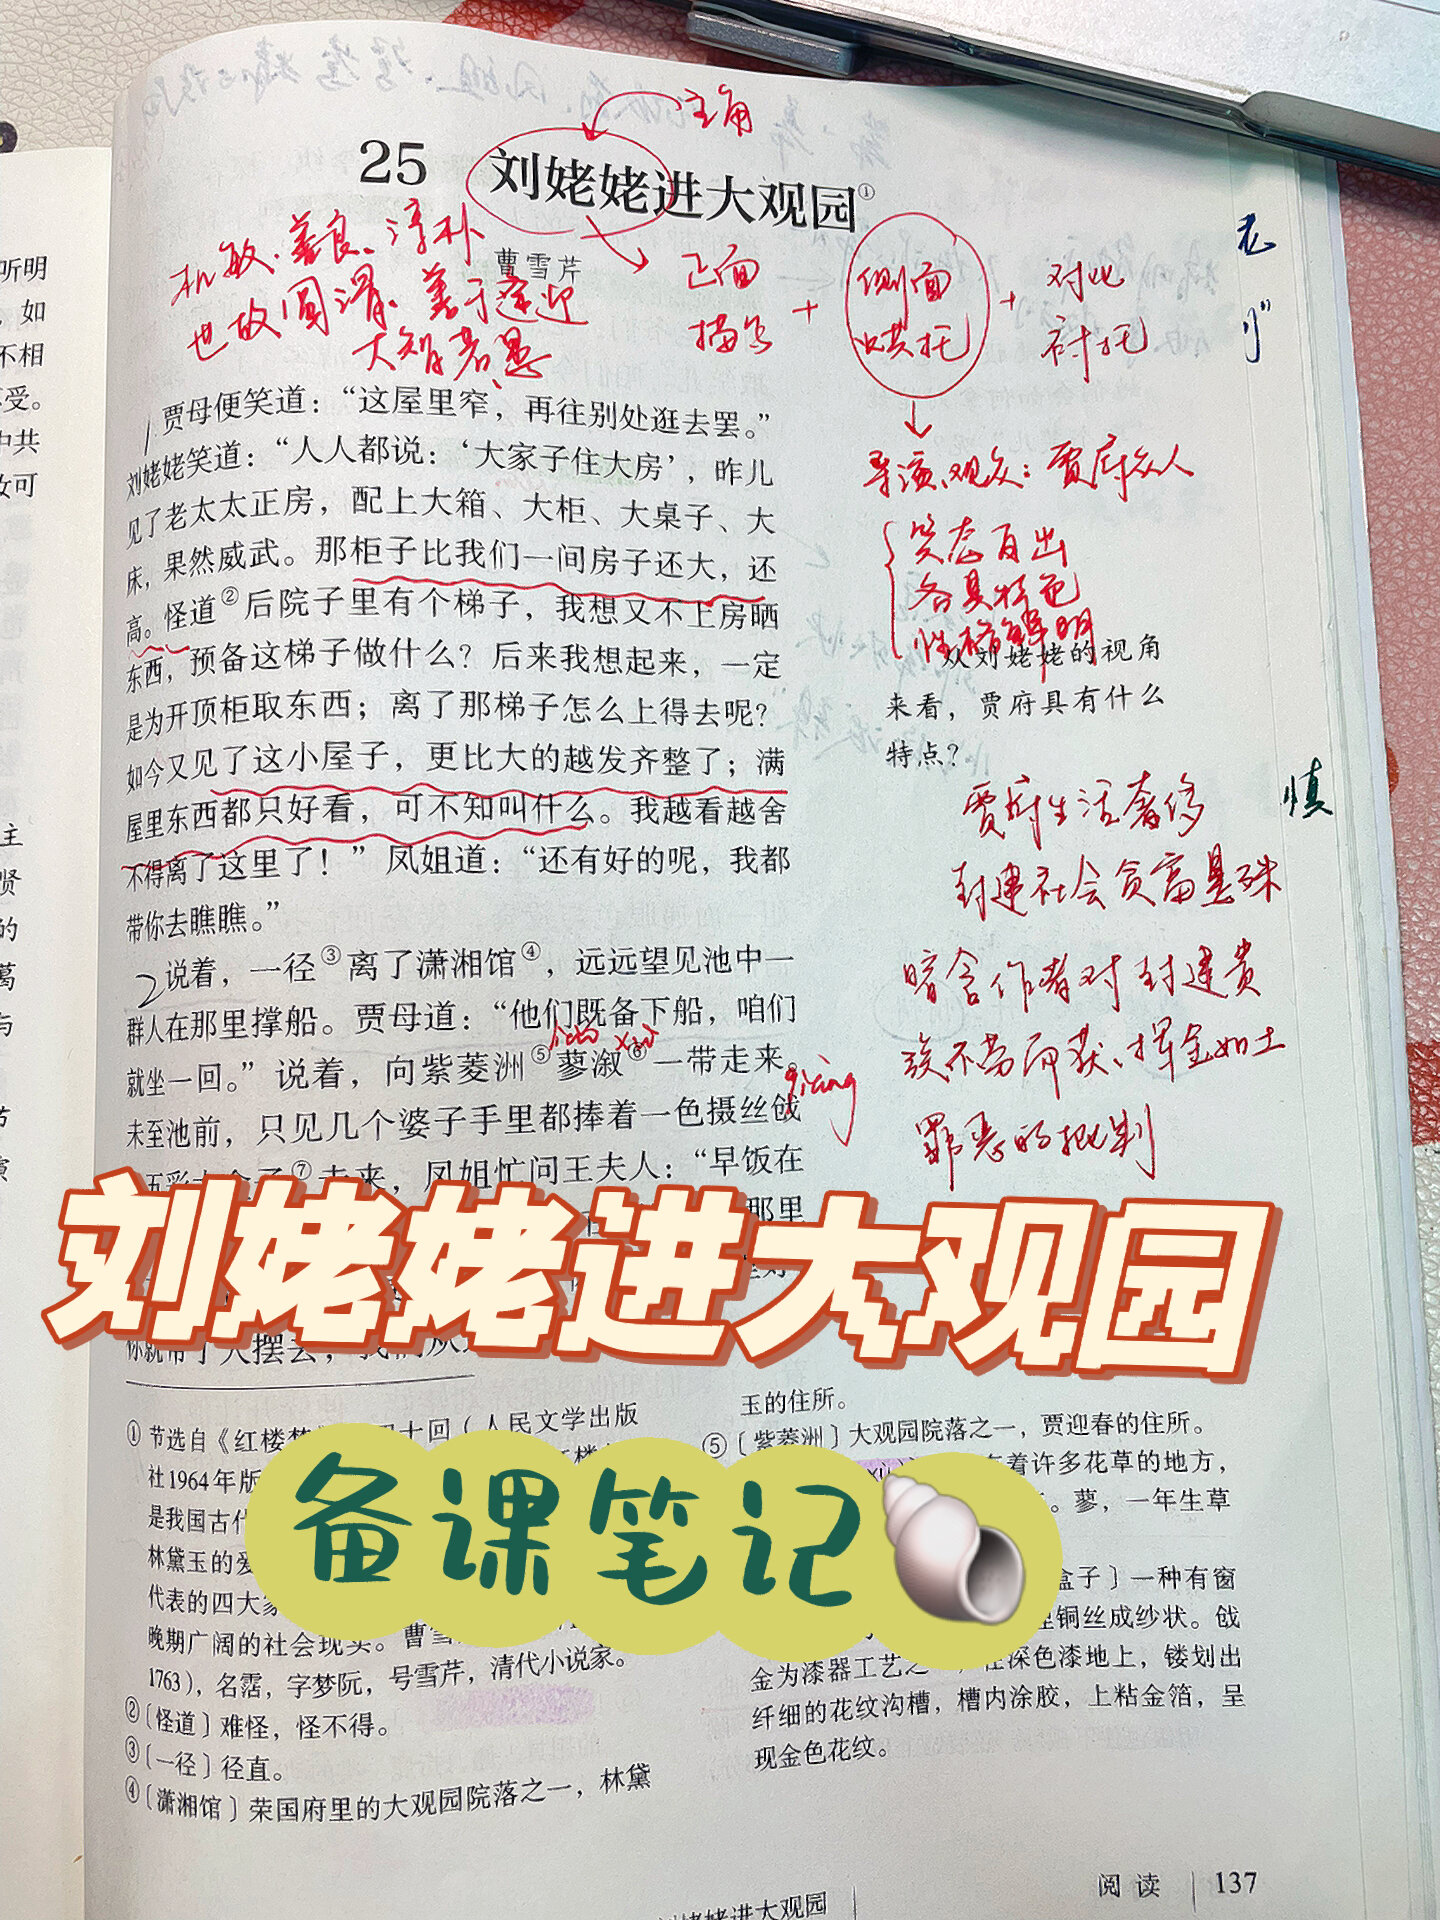 主角
25 刘姥姥进大观园①
机敏、善良、淳朴
曹雪芹
世故圆滑、善于逢迎
大智若愚
正面
描写
+
侧面
烘托
+
对比
衬托
导演、观众：贾府众人
笑态百出
各具特色
性格鲜明
贾母便笑道：“这屋里窄，再往别处逛去罢。”
刘姥姥笑道：“人人都说：‘大家子住大房’，昨儿
见了老太太正房，配上大箱、大柜、大桌子、大
床，果然威武。那柜子比我们一间房子还大，还
高。怪道②后院子里有个梯子，我想又不上房晒
东西，预备这梯子做什么？后来我想起来，一定
是为开顶柜取东西；离了那梯子怎么上得去呢？
如今又见了这小屋子，更比大的越发齐整了；满
屋里东西都只好看，可不知叫什么。我越看越舍
不得离了这里了！”凤姐道：“还有好的呢，我都
带你去瞧瞧。”
2 说着，一径③离了潇湘馆④，远远望见池中一
群人在那里撑船。贾母道：“他们既备下船，咱们
就坐一回。”说着，向紫菱洲⑤蓼溆⑥一带走来。
未至池前，只见几个婆子手里都捧着一色摄丝戗
五彩大盒子⑦走来，凤姐忙问王夫人：“早饭在
那里
你就带了人摆去，我们从
从刘姥姥的视角
来看，贾府具有什么
特点？
贾府生活奢侈
封建社会贫富悬殊
暗含作者对封建贵
族不劳而获、挥金如土
罪恶的批判
qiàng
慎
刘姥姥进大观园
备课笔记
①节选自《红楼梦》 四十回（人民文学出版
社1964年版
是我国古代
林黛玉的爱
代表的四大家
晚期广阔的社会现实。曹雪
1763），名霑，字梦阮，号雪芹，清代小说家。
②〔怪道〕难怪，怪不得。
③〔一径〕径直。
④〔潇湘馆〕荣国府里的大观园院落之一，林黛
玉的住所。
⑤〔紫菱洲〕大观园院落之一，贾迎春的住所。
着许多花草的地方，
。蓼，一年生草
盒子〕一种有窗
铜丝成纱状。戗
金为漆器工艺之一，在深色漆地上，镂划出
纤细的花纹沟槽，槽内涂胶，上粘金箔，呈
现金色花纹。
阅读 137
刘姥姥进大观园
听明
，如
不相
享受。
中共
故可
主
贤
的
葛
与
节
演